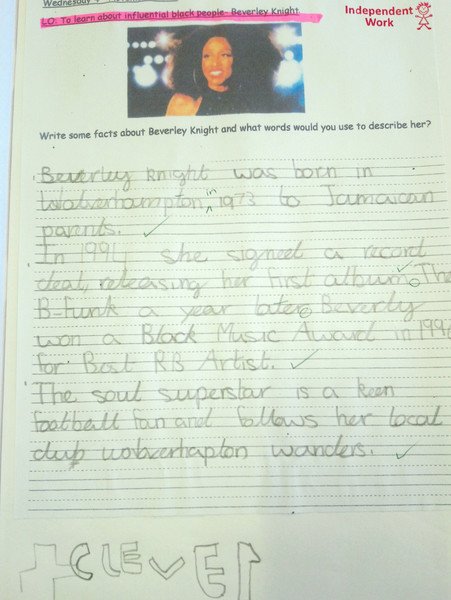 Wednesday
LO: To learn about influential black people- Beverley Knight.
Independent
Work
Write some facts about Beverley Knight and what words would you use to describe her?
Beverley Knight was born in
Wolverhampton in 1973 to Jamaican
parents.
In 1994 she signed a record
deal, releasing her first album The
B-Funk a year later. Beverley
won a Black Music Award in 1996
for Best RB Artist.
The soul superstar is a keen
football fan and follows her local
club wolverhapton wanders.
CLEVER